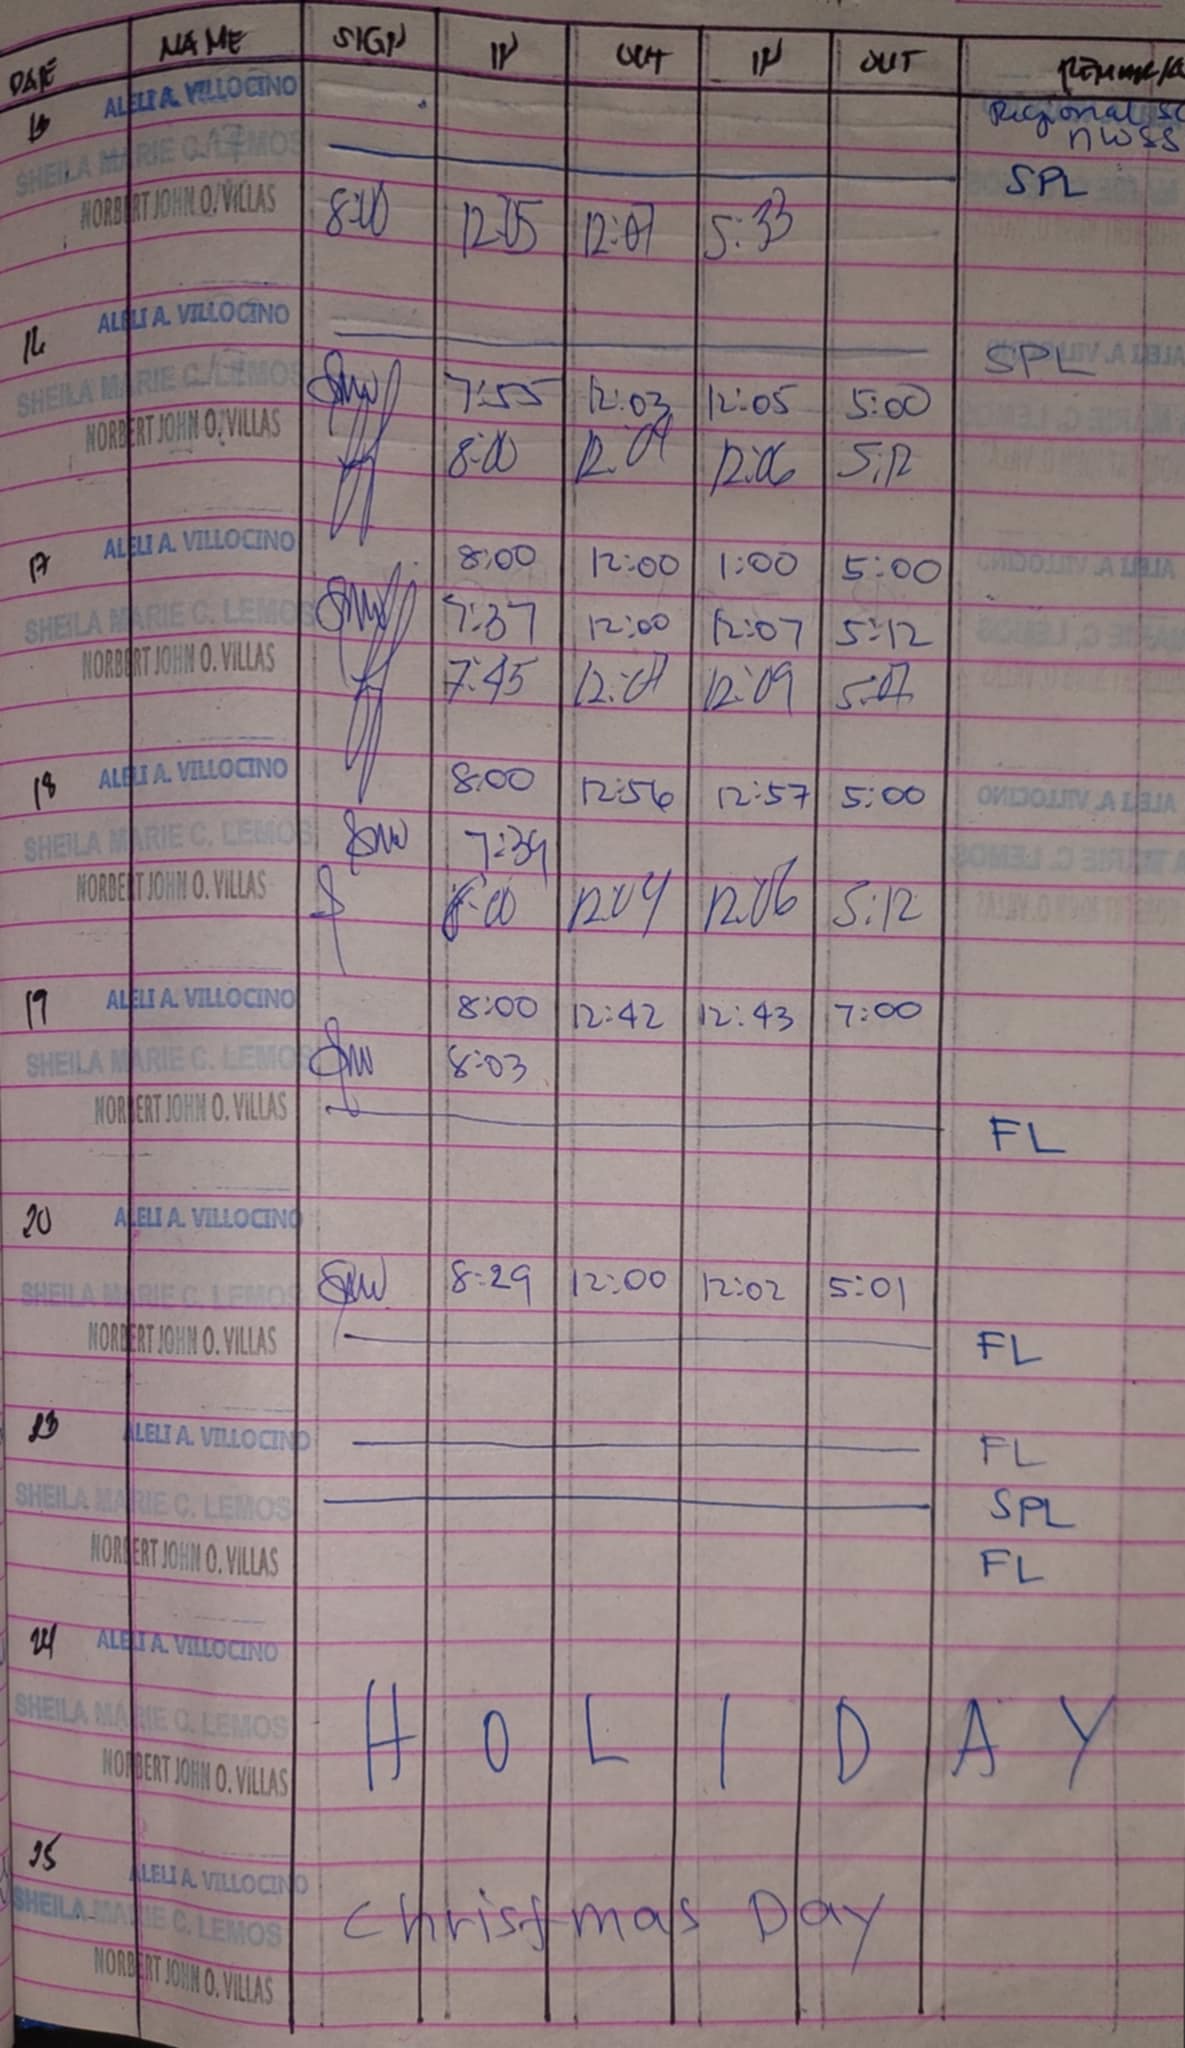 DATE NAME SIGN IN OUT IN OUT
ALELI A. VILLOCINO Regional
13 NWSS
SHEILA MARIE C. LEMOS SPL
NORBERT JOHN O. VILLAS 8:00 12:05 12:07 5:33
ALELI A. VILLOCINO SPL
16
SHEILA MARIE C. LEMOS 7:55 12:03 12:05 5:00
NORBERT JOHN O. VILLAS 8:00 12:04 12:06 5:12
17 ALELI A. VILLOCINO 8:00 12:00 1:00 5:00
SHEILA MARIE C. LEMOS 7:37 12:00 12:07 5:12
NORBERT JOHN O. VILLAS 7:45 12:07 12:09 5:07
18 ALELI A. VILLOCINO 8:00 12:56 12:57 5:00
SHEILA MARIE C. LEMOS 7:39
NORBERT JOHN O. VILLAS 8:00 12:04 12:06 5:12
19 ALELI A. VILLOCINO 8:00 12:42 12:43 7:00
SHEILA MARIE C. LEMOS 8:03
NORBERT JOHN O. VILLAS FL
20 ALELI A. VILLOCINO
SHEILA MARIE C. LEMOS 8:29 12:00 12:02 5:01
NORBERT JOHN O. VILLAS FL
23 ALELI A. VILLOCINO FL
SHEILA MARIE C. LEMOS SPL
NORBERT JOHN O. VILLAS FL
24 ALELI A. VILLOCINO
SHEILA MARIE C. LEMOS HOLIDAY
NORBERT JOHN O. VILLAS
25 ALELI A. VILLOCINO
SHEILA MARIE C. LEMOS Christmas Day
NORBERT JOHN O. VILLAS